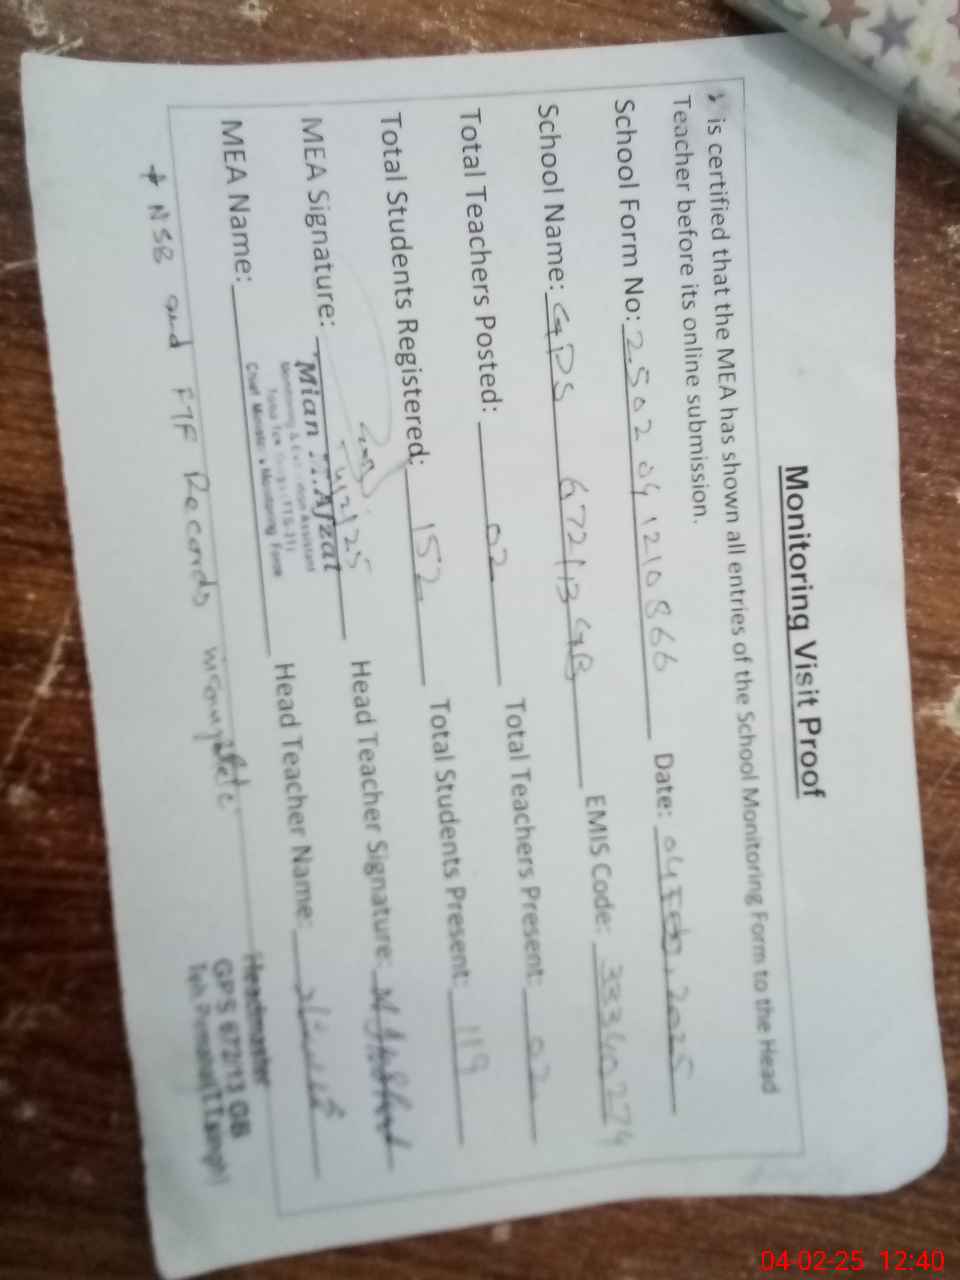 Monitoring Visit Proof
is certified that the MEA has shown all entries of the School Monitoring Form to the Head
Teacher before its online submission.
School Form No: 2502 04 1210866 Date: 04 Feb, 2025
School Name: GPS 672/13 GB EMIS Code: 33340274
Total Teachers Posted: 02 Total Teachers Present: 02
Total Students Registered: 152 Total Students Present: 119
MEA Signature: 4/2/25 Head Teacher Signature:
Mian M. Afzal
Monitoring & Evaluation Assistant
Chief Minister's Monitoring Force
MEA Name: Head Teacher Name:
Headmaster
GPS 672/13 GB
* NSB and FTF Records incomplete.
04-02-25 12:40